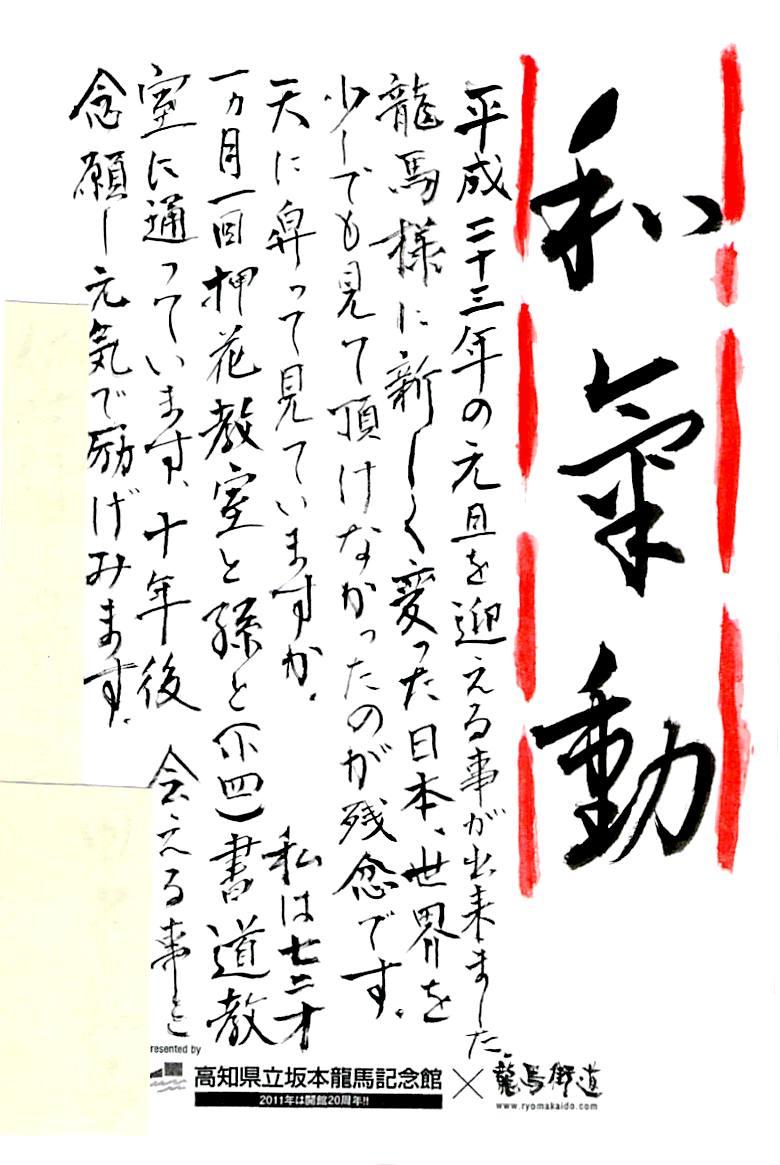 和氣動
平成二十三年の元旦を迎える事が出来ました。
龍馬様に新しく変った日本、世界を
少しでも見て頂けなかったのが残念です。
天に昇って見ていますか。 私は七二才
一ヵ月一回押花教室と孫と(小四)書道教
室に通っています、十年後 会える事を
念願し元気で励げみます。
presented by
高知県立坂本龍馬記念館
2011年は開館20周年!!
×
龍馬街道
www.ryomakaido.com